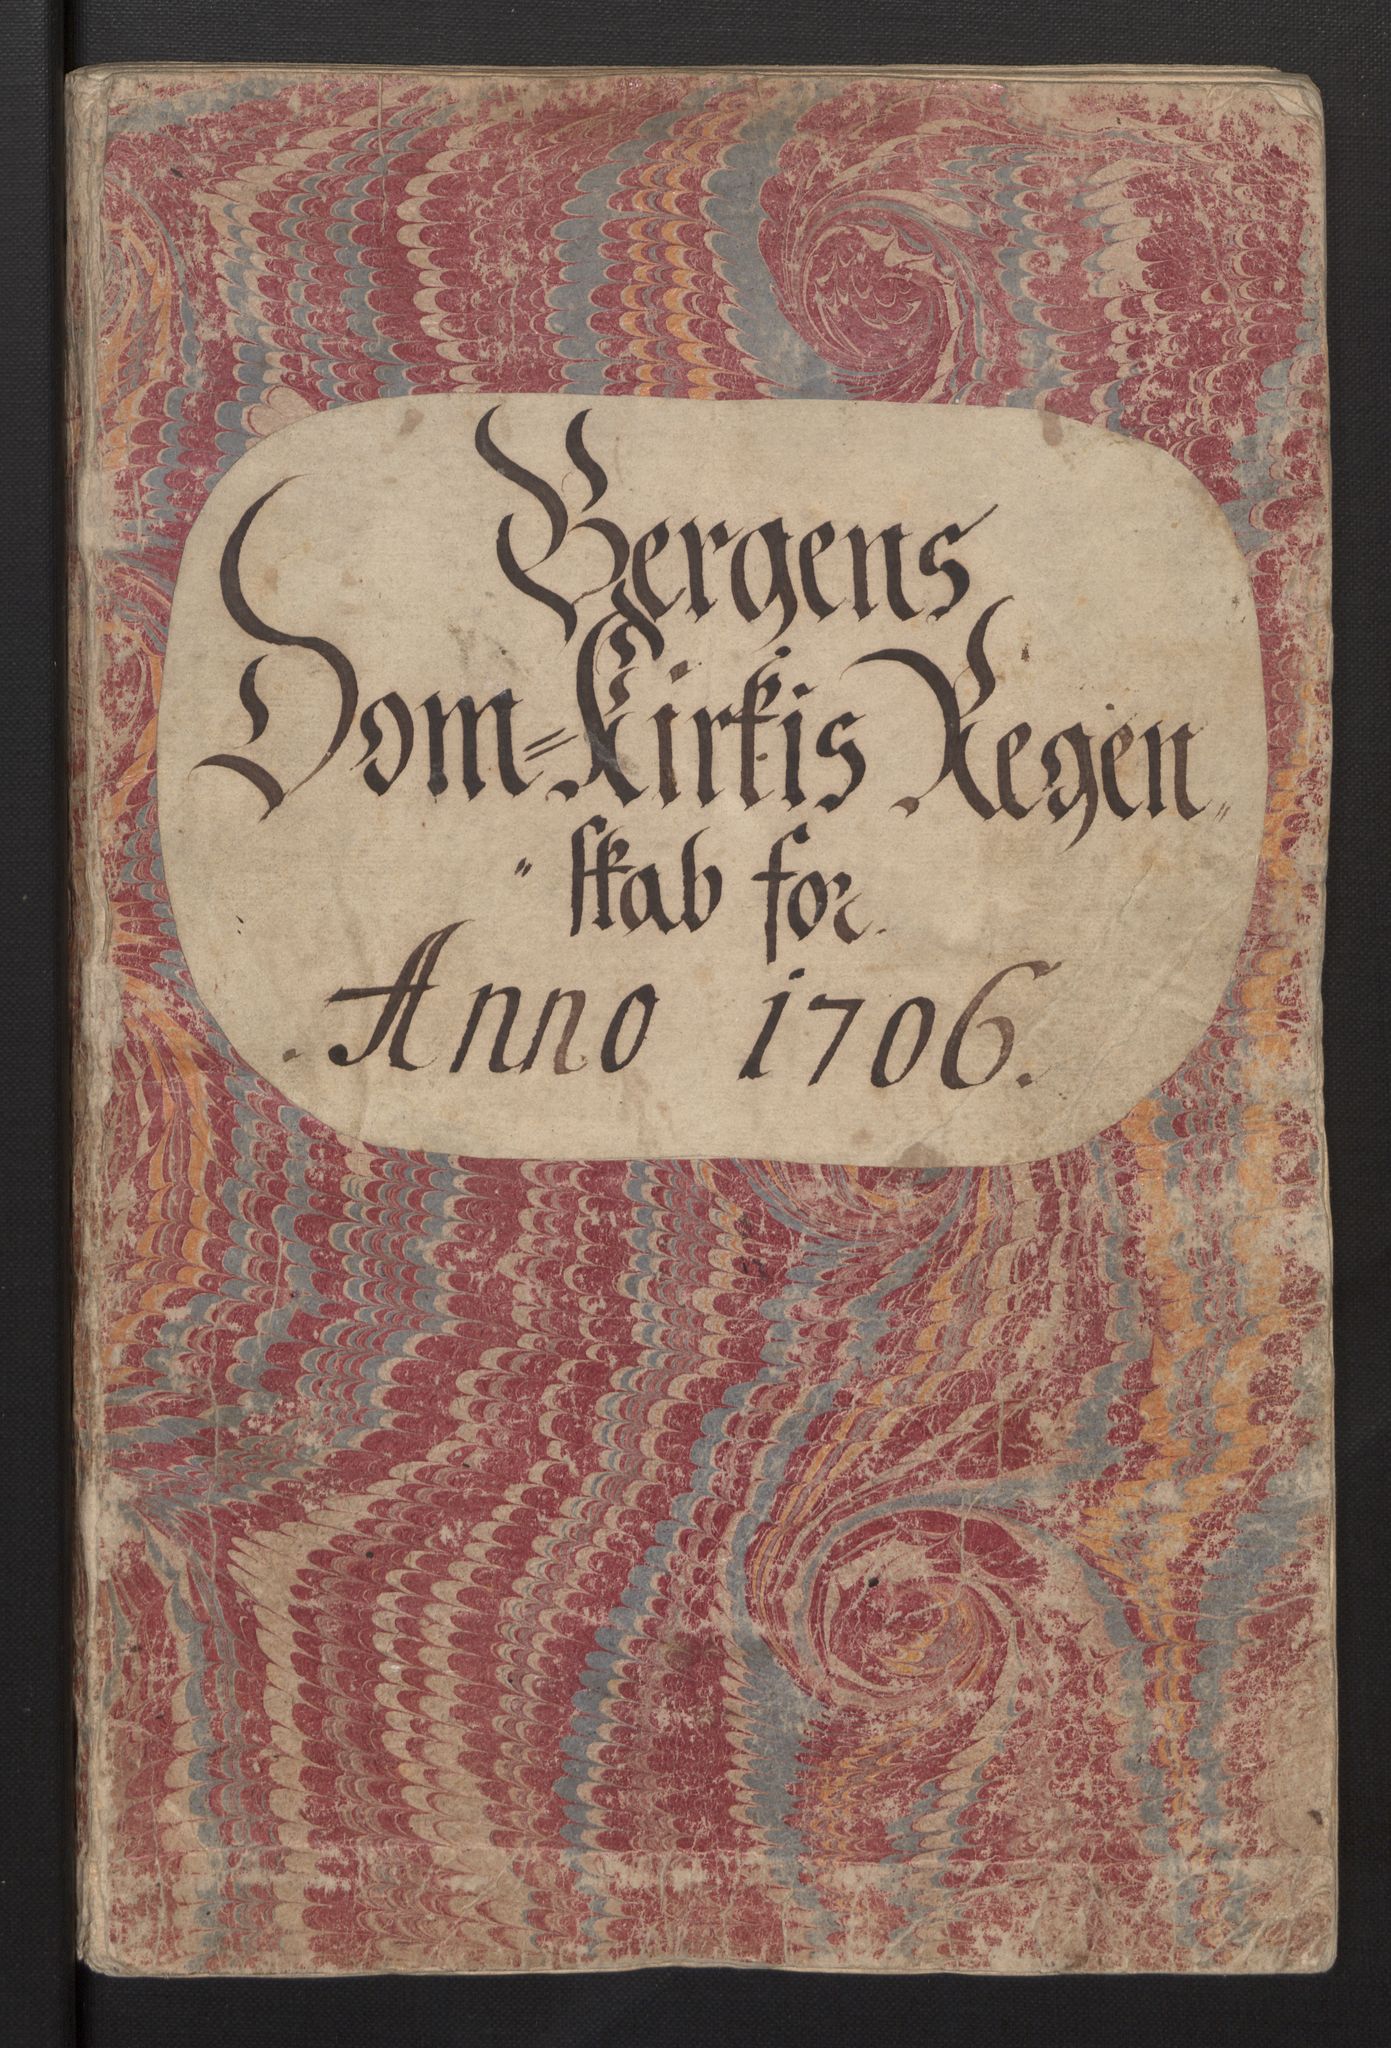 Bergens
Dom=Kirkis Regen„
„skab for
Anno 1706.